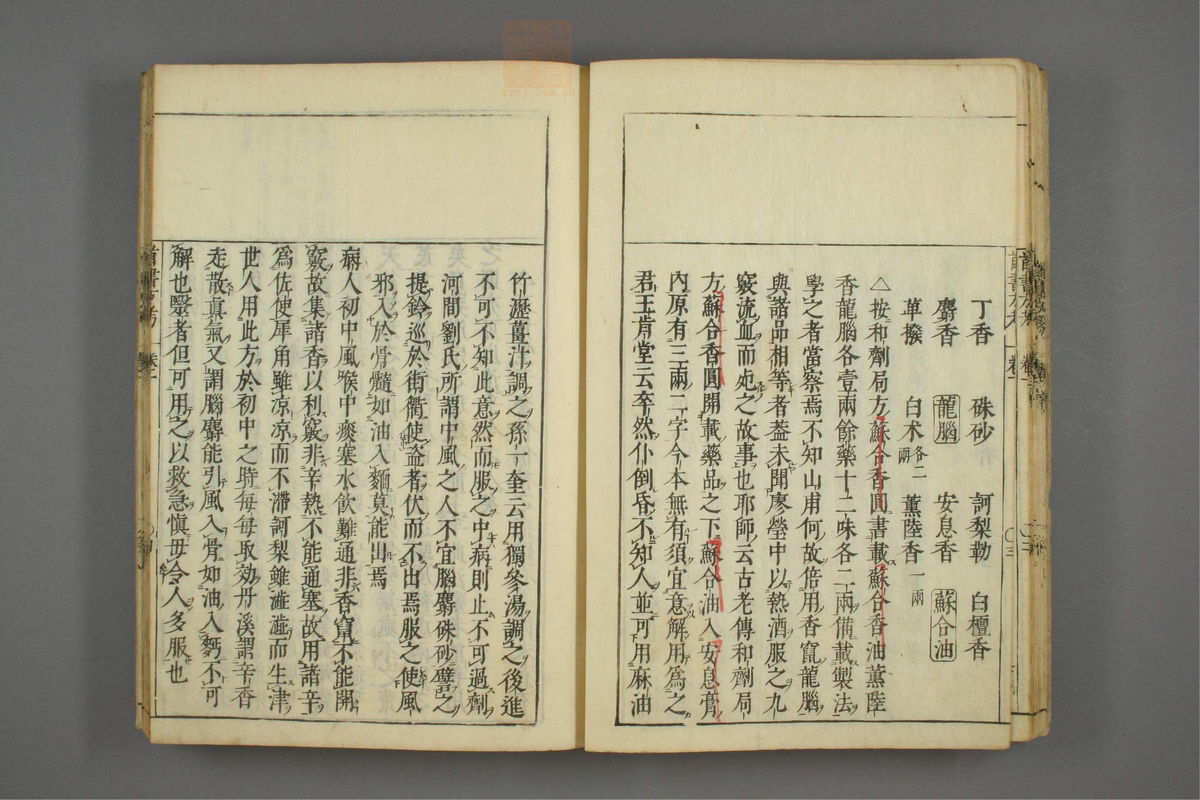 丁香 硃砂 訶梨勒 白檀香
麝香 龍腦 安息香 蘇合油
蓽撥 白术各二兩 薰陸香一兩
△按和劑局方蘇合香圓書載蘇合香油薰陸
香龍腦各壹兩餘藥十二味各二兩備載製法
學之者當察焉不知山甫何故倍用香竄龍腦
與諸品相等者葢未聞廖瑩中以熱酒服之九
竅流血而死之故事也耶師云古老傳和劑局
方蘇合香圓開載藥品之下蘇合油入安息膏
內原有三兩二字今本無有須宜意解用爲之
君王肯堂云卒然仆倒昏不知人並可用麻油
竹瀝薑汁調之孫一奎云用獨參湯調之後進
不可不知此意然而服之中病則止不可過劑
河間劉氏所謂中風之人不宜腦麝硃砂譬之
提鈴巡於街衢使盜者伏而不出焉服之使風
邪入於骨髓如油入麵莫能出焉
病人初中風喉中痰塞水飲難通非香竄不能開
竅故集諸香以利竅非辛熱不能通塞故用諸辛
爲佐使犀角雖凉凉而不滯訶梨雖澁澁而生津
世人用此方於初中之時每每取効丹溪謂辛香
走散真氣又謂腦麝能引風入骨如油入麪不可
解也醫者但可用之以救急慎毋令人多服也
卷一
zysj.com.cn